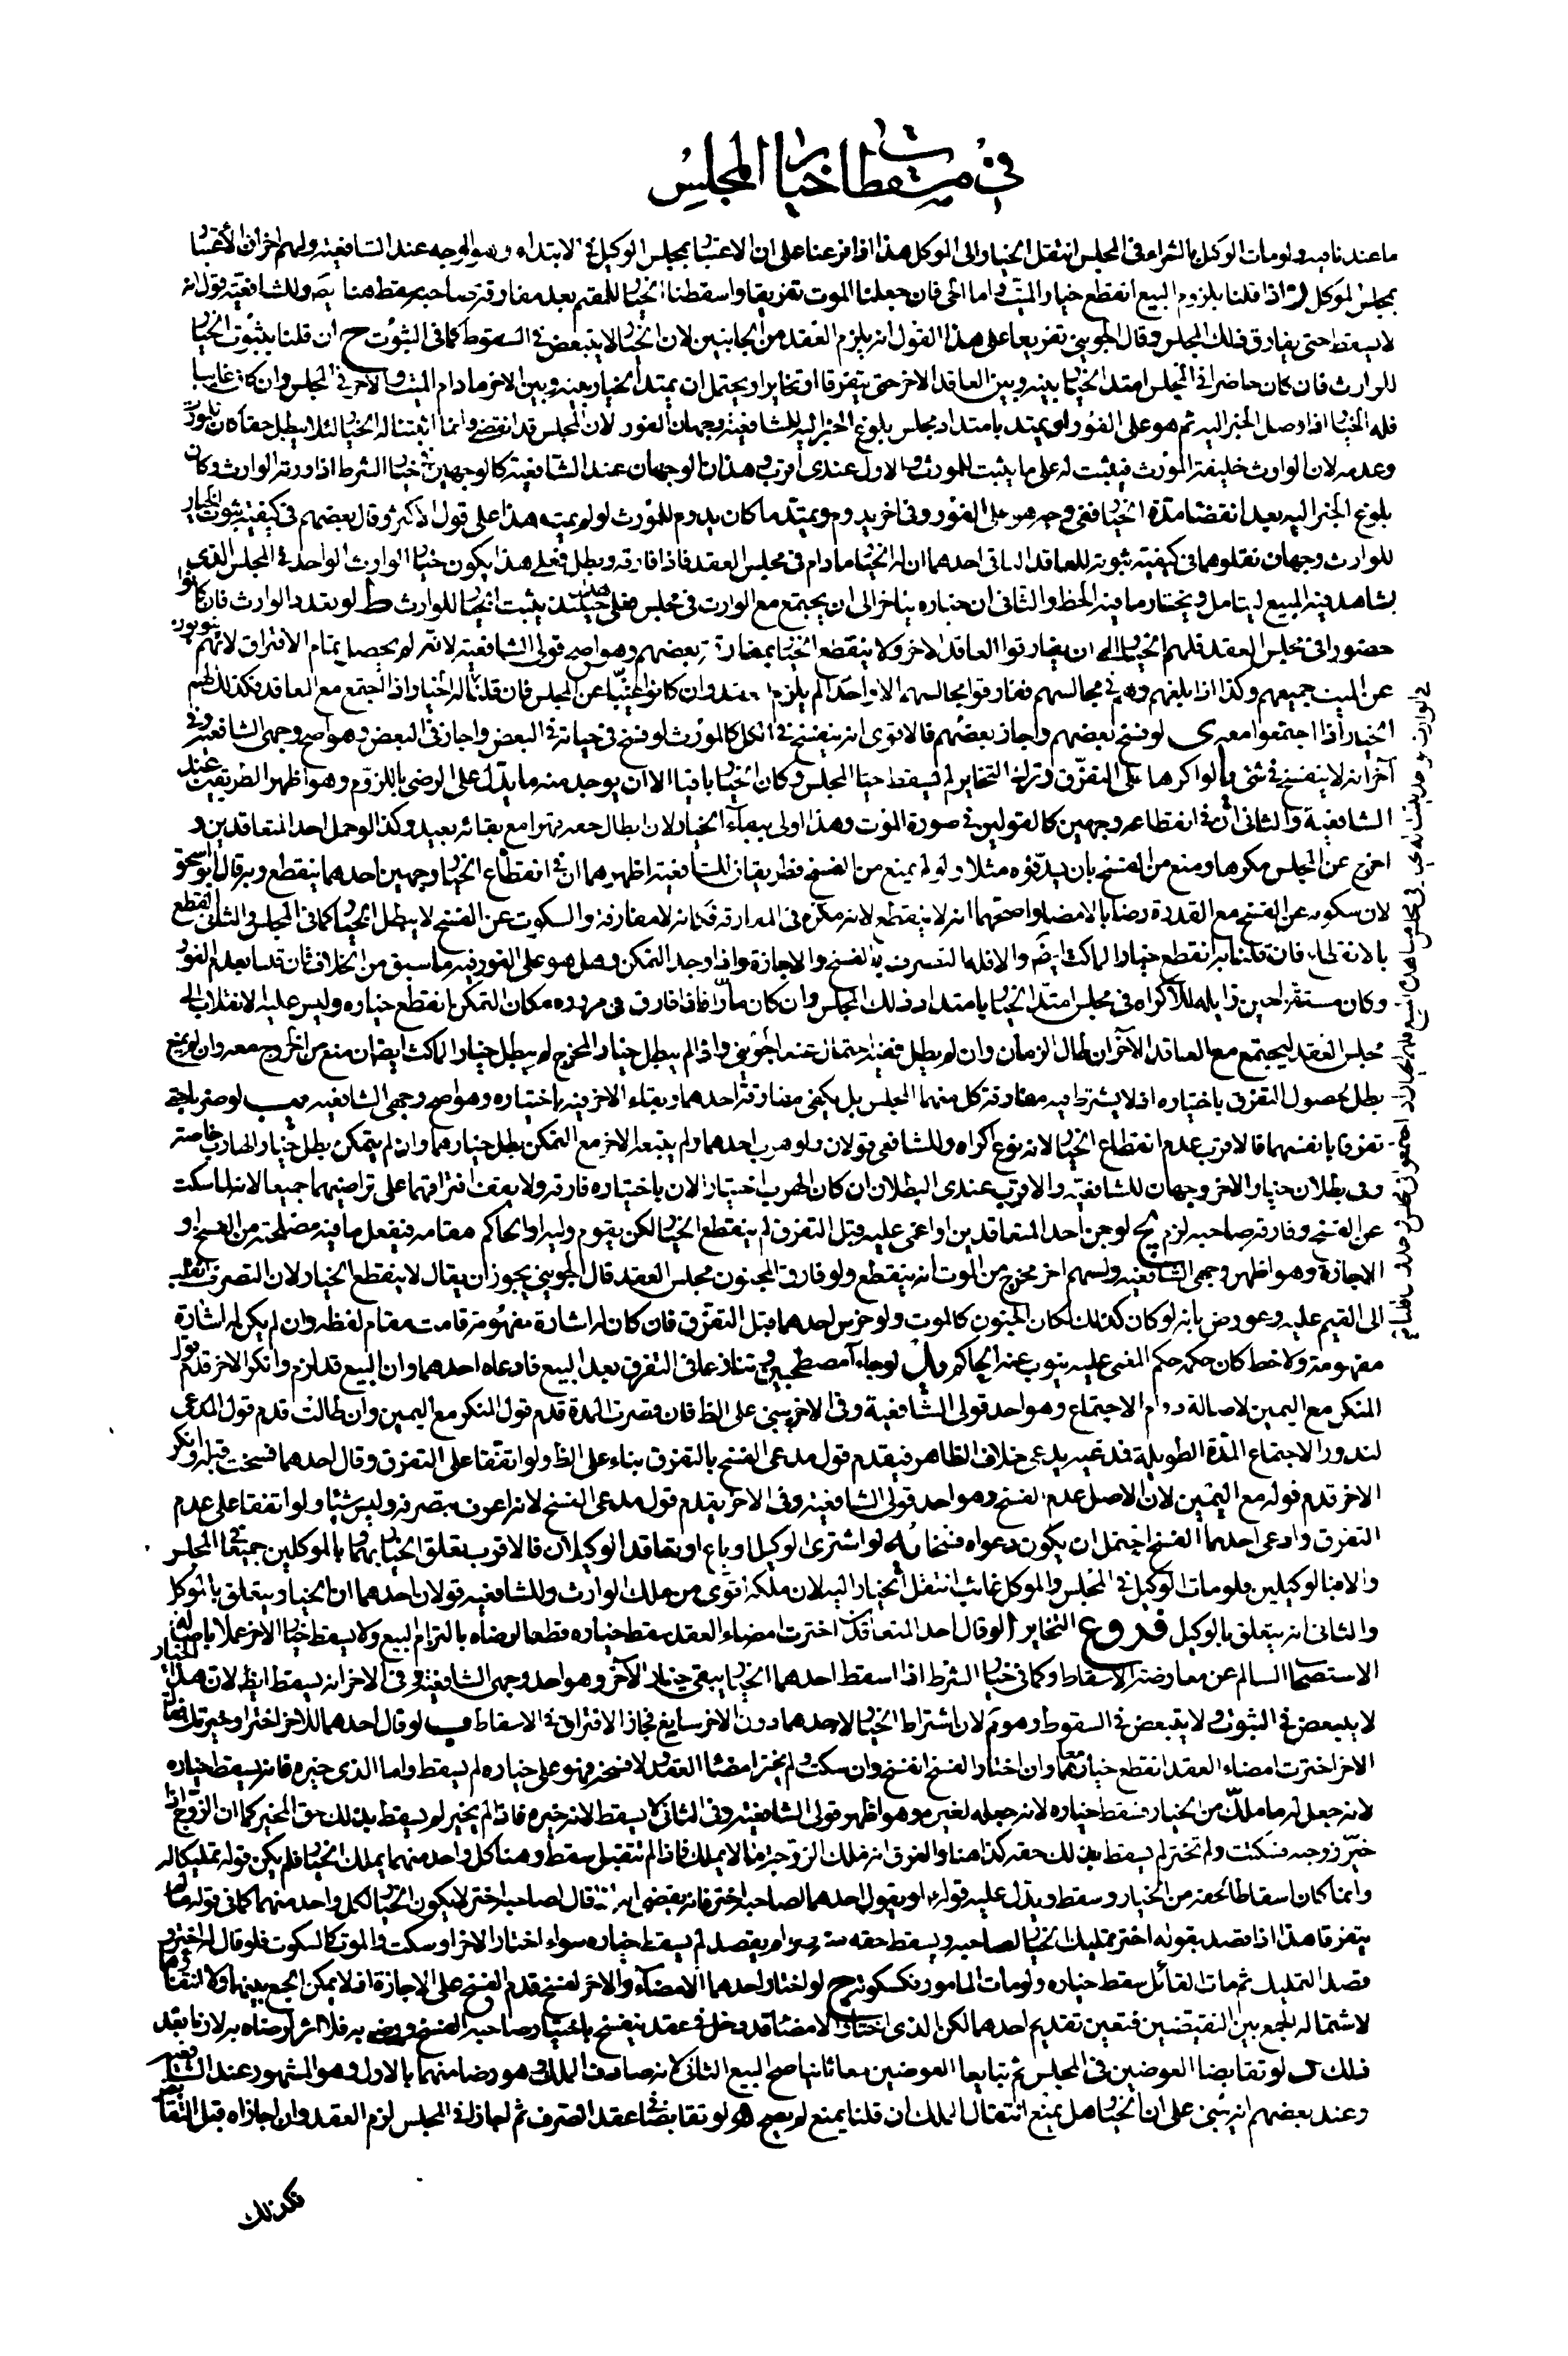 في مسقطات خيار المجلس
ما عندنا فيه ولو مات الوكيل بالشراء في المجلس انتقل الخيار الى الموكل هذا اذا فرعنا على ان الاعتبار بمجلس الوكيل في الابتداء وهو الوجه عند الشافعية ولهم اخر ان الاعتبار
بمجلس الموكل ز اذا قلنا بلزوم البيع انقطع خيار الميت واما الحي فان جعلنا الموت تفريقا واسقطنا الخيار للمقيم بعد مفارقة صاحبه سقط هنا ايضا وللشافعية قول انه
لا يسقط حتى يفارق ذلك المجلس وقال الجويني تفريعا على هذا القول انه يلزم العقد من الجانبين لان الخيار لا يتبعض في السقوط كما في الثبوت ح ان قلنا بثبوت الخيار
للوارث فان كان حاضرا في المجلس امتد الخيار بينه وبين العاقد الاخر حتى يتفرقا او تخايرا ويحتمل ان يمتد الخيار بينه وبين الاخر ما دام الميت والاخر في المجلس وان كان غايبا
فله الخيار اذا وصل الخبر اليه ثم هو على الفور او يمتد بامتداد مجلس بلوغ الخبر اليه للشافعية وجهان الفور لان المجلس قد انقضى وانما اثبتنا له الخيار لئلا يبطل حقا كان للمورث
وعدمه لان الوارث خليفة المورث فيثبت له على ما يثبت للمورث والاول عندي اقرب وهذان الوجهان عند الشافعية كالوجهين في خيار الشرط اذا ورثه الوارث وكان
بلوغ الخبر اليه بعد انقضاء مدة الخيار ففي وجه هو على الفور وفي اخر يدوم ويمتد ما كان يدوم للمورث لو لم يمت هذا على قول الاكثر وقال بعضهم في كيفية ثبوت الخيار
للوارث وجهان نقلوهما في كيفية ثبوته للعاقد الباقي احدهما ان له الخيار ما دام في مجلس العقد فاذا فارقه بطل فعلى هذا يكون خيار الوارث الواحد في المجلس الذي
يشاهد فيه المبيع ليتامل ويختار ما فيه الحظ والثاني ان خياره يتاخر الى ان يجتمع مع الوارث في مجلس فعلى هذا حينئذ يثبت الخيار للوارث ط لو تعدد الوارث فان كانوا
حضورا في مجلس العقد فلهم الخيار الى ان يفارقوا العاقد الاخر ولا ينقطع الخيار بمفارقة بعضهم وهو اصح قولي الشافعية لانه لم يحصل تمام الافتراق لانهم ينوبون
عن الميت جميعهم وكذا اذا بلغهم وهم في مجالسهم ففارقوا مجالسهم الا واحدا لم يلزم العقد وان كانوا غيبا عن المجلس فان قلنا له الخيار اذا اجتمع مع العاقد فكذلك لهم
الخيار اذا اجتمعوا معه ي لو فسخ بعضهم واجاز بعضهم فالاقوى انه ينفسخ في الكل كالمورث لو فسخ في حياته في البعض واجاز في البعض وهو اصح وجهي الشافعية وفي
اخر انه لا ينفسخ في شئ يا لو اكرها على التفرق وترك التخاير لم يسقط خيار المجلس وكان الخيار باقيا الا ان يوجد منه ما يدل على الرضى باللزوم وهو اظهر الطريقين عند
الشافعية والثاني ان في انقطاعه وجهين كالقولين في صورة الموت وهذا اولى ببقاء الخيار لان ابطال حقه قهرا مع بقائه بعيد وكذا لو حمل احد المتعاقدين و
اخرج عن المجلس مكرها ومنع من الفسخ بان يسد فوه مثلا ولو لم يمنع من الفسخ فطريقان للشافعية اظهرهما ان في انقطاع الخيار وجهين احدهما ينقطع وبه قال ابو اسحق
لان سكوته عن الفسخ مع القدرة رضا بالامضاء واصحهما انه لا ينقطع لانه مكره في المفارقة فكانه لا مفارقة والسكوت عن الفسخ لا يبطل الخيار كما في المجلس والثاني القطع
بالانقطاع فان قلنا به انقطع خيار الماكث ايضا والا فله التصرف بالفسخ والاجازة واذا وجد التمكن وهل هو على الفور فيه ما سبق من الخلاف فان قلنا بعدم الفور
وكان مستقرا حين زايله الاكراه في مجلس امتد الخيار بامتداد ذلك المجلس وان كان مارا فاذا فارق في مروره مكان التمكن انقطع خياره وليس عليه الانقلاب الى
مجلس العقد ليجتمع مع العاقد الاخر ان طال الزمان وان لم يطل ففيه احتمال عند الجويني واذا لم يبطل خيار المخرج لم يبطل خيار الماكث ايضا ان منع من الخروج معه وان لم يمنع
بطل لحصول التفرق باختياره اذ لا يشترط فيه مفارقة كل منهما المجلس بل يكفي مفارقة احدهما وبقاء الاخر فيه باختياره وهو اصح وجهي الشافعية يب لو ضربا حتى
تفرقا بانفسهما فالاقرب عدم انقطاع الخيار لانه نوع اكراه وللشافعي قولان ولو هرب احدهما ولم يتبعه الاخر مع التمكن بطل خيارهما وان لم يتمكن بطل خيار الهارب خاصة
وفي بطلان خيار الاخر وجهان للشافعية والاقرب عندي البطلان ان كان الهرب اختيارا لانه باختياره فارقه ولا يقف افتراقهما على تراضيهما جميعا لانه لما سكت
عن الفسخ وفارقه صاحبه لزم يج لو جن احد المتعاقدين او اغمى عليه قبل التفرق لم ينقطع الخيار لكن يقوم وليه او الحاكم مقامه فيفعل ما فيه مصلحته من الفسخ او
الاجازة وهو اظهر وجهي الشافعية ولهم اخر مخرج من الموت انه ينقطع ولو فارق المجنون مجلس العقد قال الجويني يجوز ان يقال لا ينقطع الخيار لان التصرف انقلب
الى القيم عليه وعورض بانه لو كان كذلك لكان الجنون كالموت ولو خرس احدهما قبل التفرق فان كان له اشارة مفهومة قامت مقام لفظه وان لم يكن له اشارة
مفهومة ولا خط كان حكمه حكم المغمى عليه ينوب عنه الحاكم يد لو جاءا مصطحبين وتنازعا في التفرق بعد البيع فادعاه احدهما وان البيع قد لزم وانكر الاخر قدم قول
المنكر مع اليمين لاصالة دوام الاجتماع وهو احد قولي الشافعية وفي الاخر يبنى على الظ فان قصرت المدة قدم قول المنكر مع اليمين وان طالت قدم قول المدعى
لندور الاجتماع المدة الطويلة فمدعيه يدعى خلاف الظاهر فيقدم قول مدعى الفسخ بالتفرق بناء على الظ ولو اتفقا على التفرق وقال احدهما فسخت قبله وانكر
الاخر قدم قوله مع اليمين لان الاصل عدم الفسخ وهو احد قولي الشافعية وفي الاخر يقدم قول مدعى الفسخ لانه اعرف بتصرفه وليس شيئا ولو اتفقا على عدم
التفرق وادعى احدهما الفسخ احتمل ان يكون دعواه فسخا يه لو اشترى الوكيل او باع او تعاقد الوكيلان فالاقرب تعلق الخيار بهما وبالموكلين جميعا في المجلس
والا فبالوكيلين فلو مات الوكيل في المجلس والموكل غائب انتقل الخيار اليه لان ملكه اقوى من ملك الوارث وللشافعية قولان احدهما ان الخيار يتعلق بالموكل
والثاني انه يتعلق بالوكيل فروع التخاير ا لو قال احد المتعاقدين اخترت امضاء العقد سقط خياره قطعا لرضاه بالتزام البيع ولا يسقط خيار الاخر عملا باصالة
الاستصحاب السالم عن معارضة الاسقاط وكما في خيار الشرط اذا اسقط احدهما الخيار يبقى خيار الاخر وهو احد وجهي الشافعية وفي الاخر انه يسقط ايضا لان هذا الخيار
لا يتبعض في الثبوت ولا يتبعض في السقوط وهو م لان اشتراط الخيار لاحدهما دون الاخر سايغ فجاز الافتراق في الاسقاط ب لو قال احدهما للاخر اختر او خيرتك فقال
الاخر اخترت امضاء العقد انقطع خيارهما وان اختار الفسخ انفسخ وان سكت ولم يختر امضاء العقد ولا فسخه فهو على خياره لم يسقط واما الذي خيره فانه يسقط خياره
لانه جعل له ما ملك من الخيار فسقط خياره لانه جعله لغيره وهو اظهر قولي الشافعية وفي الثاني لا يسقط لانه خيره فاذا لم يختر لم يسقط بذلك حق المخير كما ان الزوج اذا
خير زوجته فسكتت ولم تختر لم يسقط بذلك حقه كذا هنا والفرق انه ملك الزوجة ما لا يملك فاذا لم تتقبل سقط وهنا كل واحد منهما يملك الخيار فلم يكن قوله تمليكا له
وانما كان اسقاطا لحقه من الخيار وسقط ويدل عليه قوله او يقول احدهما لصاحبه اختر فانه يقضي انه اذا قال لصاحبه اختر لا يكون الخيار لكل واحد منهما كما في قوله ما لم
يتفرقا هذا اذا قصد بقوله اختر تمليك الخيار لصاحبه ويسقط حقه منه ولو لم يقصد لم يسقط خياره سواء اختار الاخر او سكت والموت كالسكوت فلو قال له اختر و
قصد التمليك ثم مات القائل سقط خياره ولو مات المامور فكسكوته ج لو اختار احدهما الامضاء والاخر الفسخ قدم الفسخ على الاجازة اذ لا يمكن الجمع بينهما ولا انتفاؤهما
لاشتماله الجمع بين النقيضين فتعين تقديم احدهما لكن الذي اختار الامضاء قد دخل في عقد ينفسخ باختيار صاحبه الفسخ ورضى به فلا اثر لرضاه به لازما بعد
ذلك د لو تقابضا العوضين في المجلس ثم تبايعا العوضين معا ثانيا صح البيع الثاني لانه صادف الملك وهو رضا منهما بالاول وهو المشهور عند الشافعية
وعند بعضهم انه يبنى على ان الخيار هل يمنع انتقال الملك ان قلنا يمنع لم يصح ه لو تقابضا في عقد الصرف ثم اجازا في المجلس لزم العقد وان اجازاه قبل التقابض
فكذلك